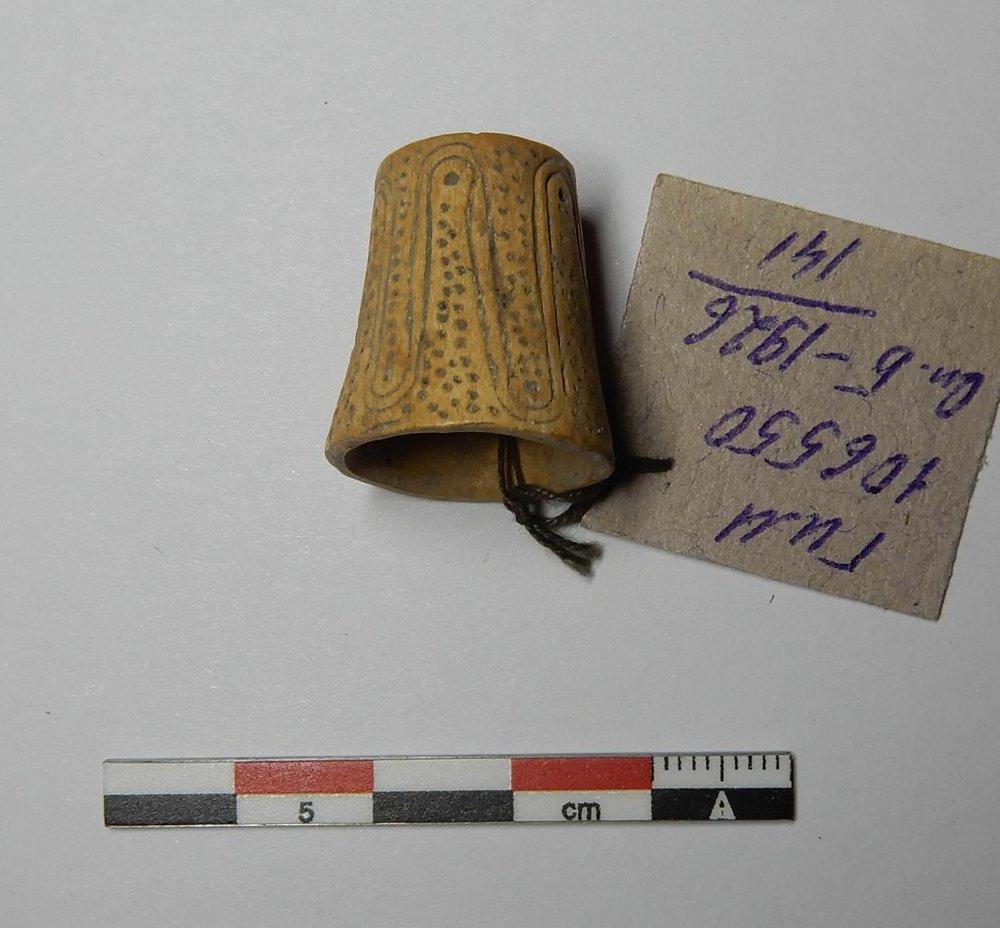 ГИМ
106550
оп. Б-1926
141
5 cm